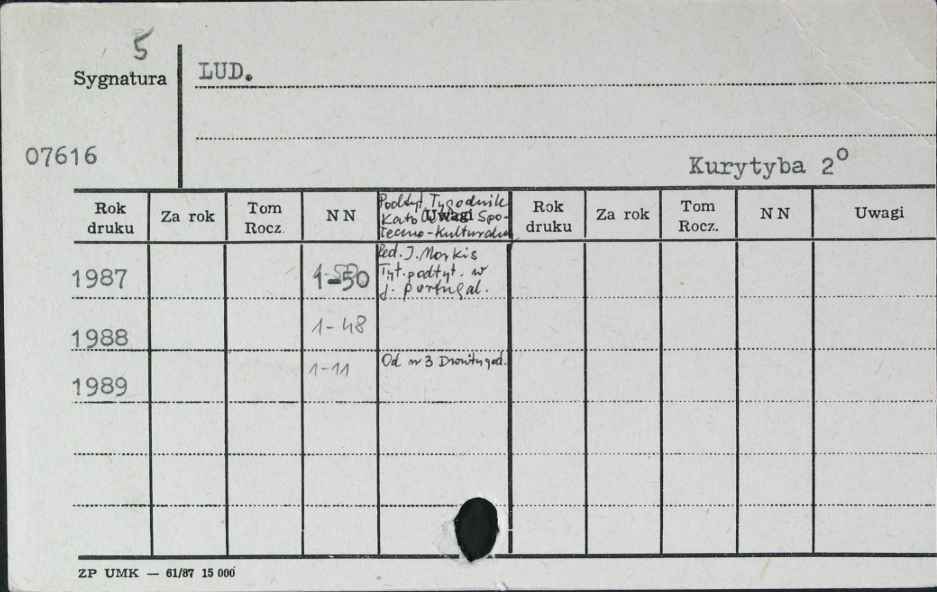 5
Sygnatura LUD.
07616
Kurytyba 2°
Rok druku Za rok Tom Rocz. N N Uwagi Rok druku Za rok Tom Rocz. N N Uwagi
Podtyt. Tygodnik
Kato Spo-
łeczno-kulturalny
Red. J. Morkis
1987 1-50 Tyt. podtyt. w
j. portugal.
1988 1-48
1989 1-11 Od nr 3 Dwutygod.
ZP UMK — 61/87 15 000